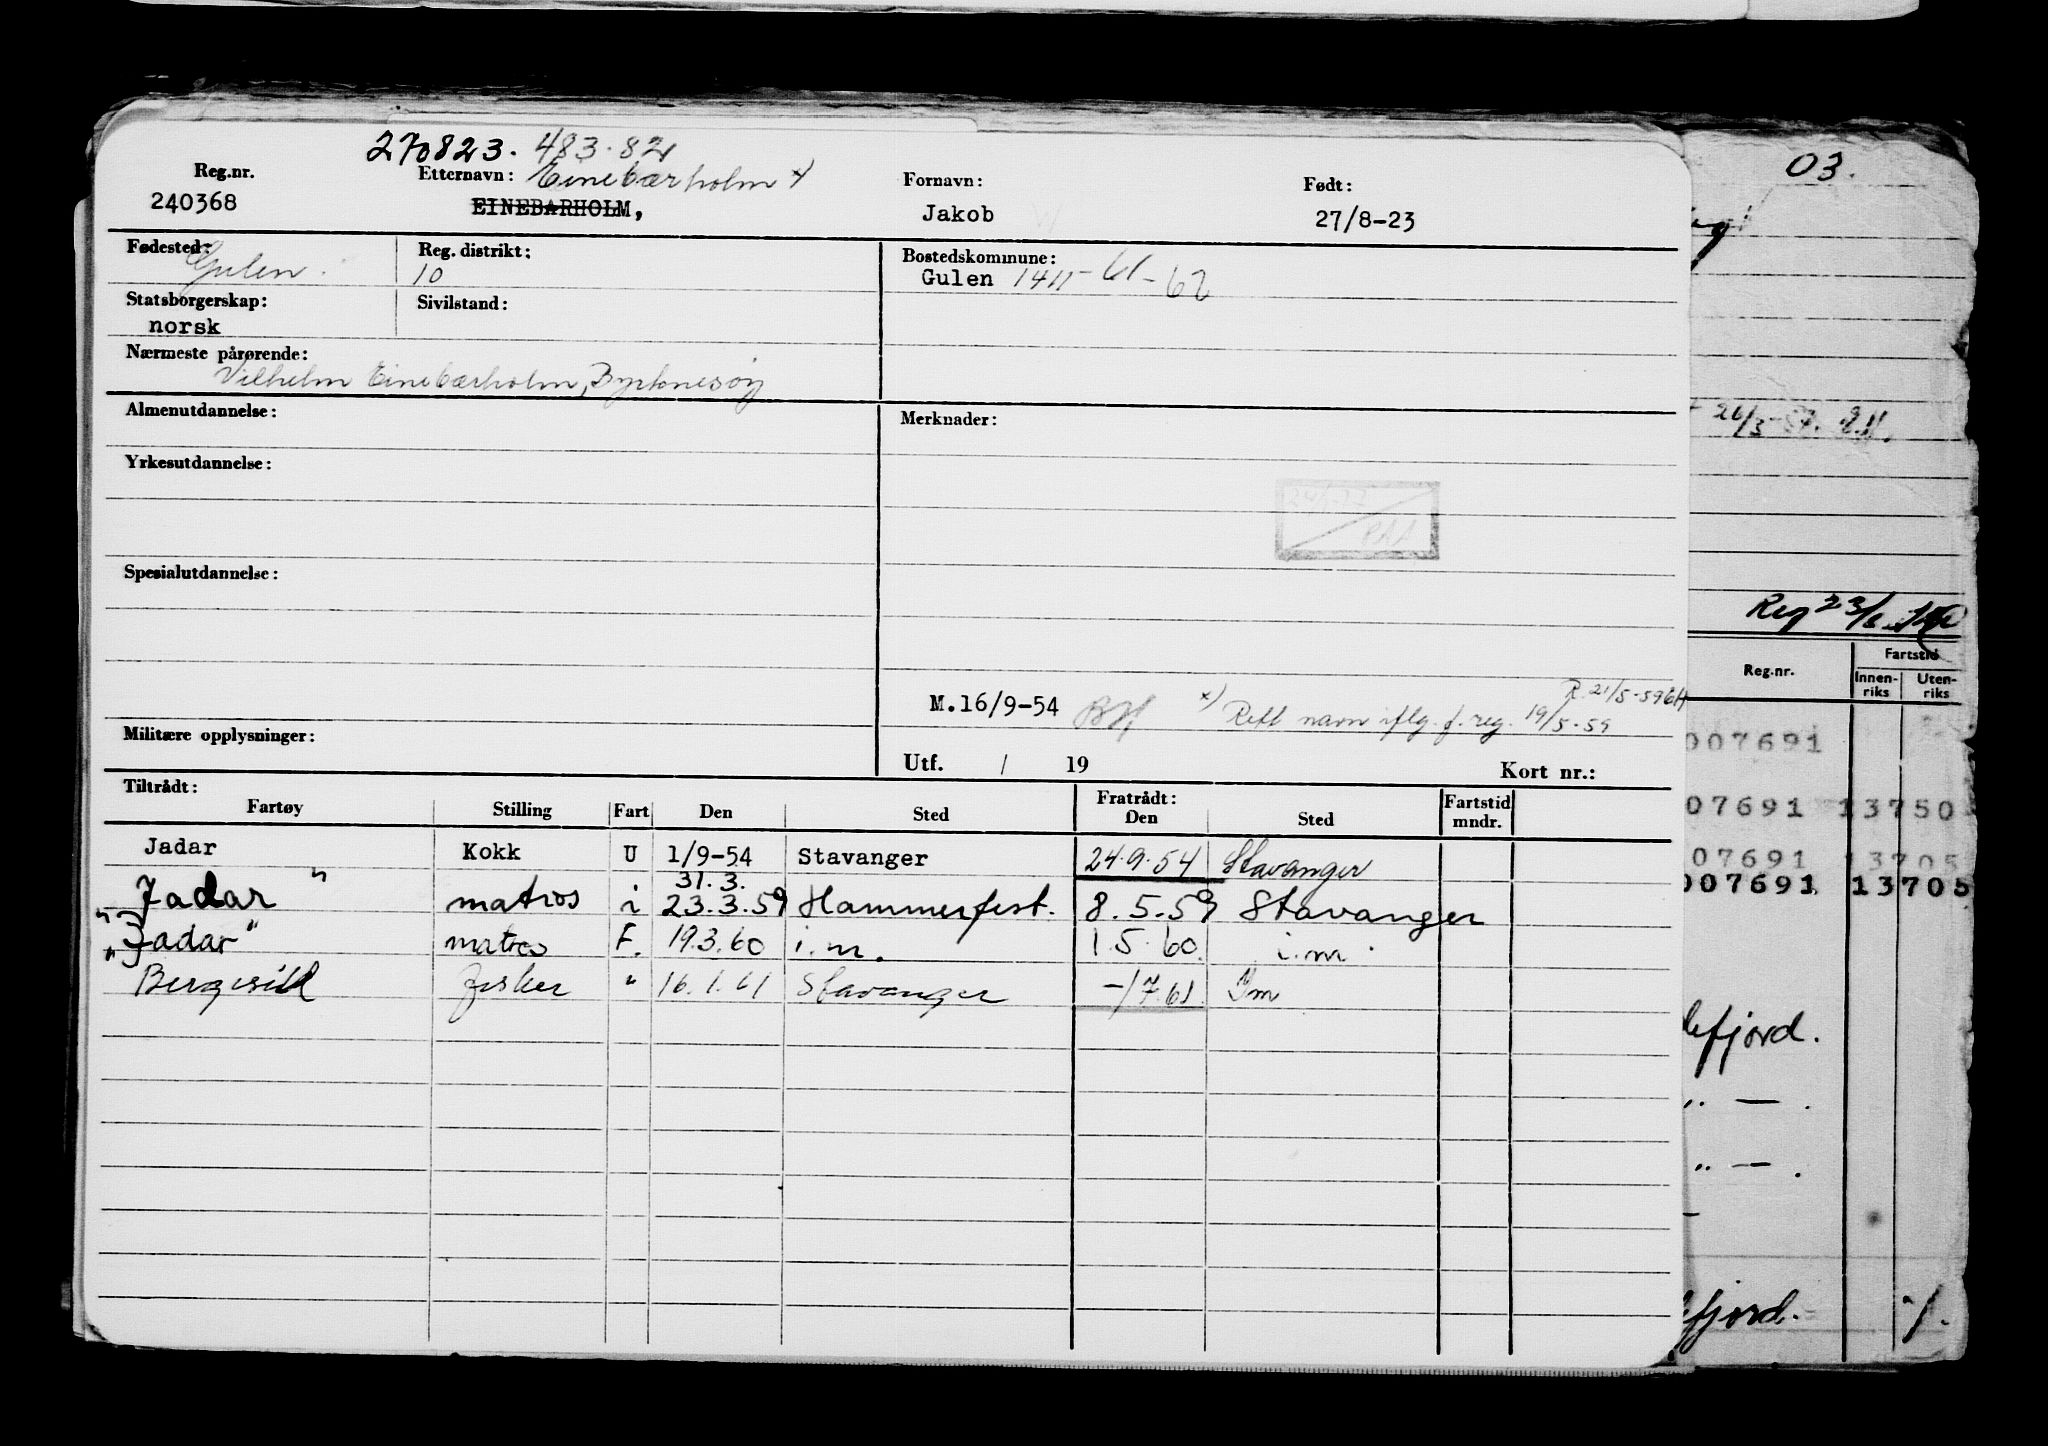 270823. 483.82
Reg.nr. Etternavn: Einebærholm x) Fornavn: Født:
240368 EINEBARHOLM, Jakob 27/8-23
Fødested: Gulen. Reg. distrikt: 10 Bostedskommune: Gulen 1411-61-62
Statsborgerskap: norsk Sivilstand:
Nærmeste pårørende:
Vilhelm Einebærholm, Byrknesøy
Almenutdannelse: Merknader:
Yrkesutdannelse:
Spesialutdannelse:
R. 21/5-59
M.16/9-54 BH x) Rett navn iflg. f. reg. 19/5-59
Militære opplysninger:
Utf. / 19 Kort nr.:
Tiltrådt: Fratrådt:
Fartøy Stilling Fart Den Sted Den Sted Fartstid mndr.
Jadar Kokk U 1/9-54 Stavanger 24.9.54 Stavanger
31.3.
"Jadar" matros i 23.3.59 Hammerfest. 8.5.59 Stavanger
"Jadar" matros F. 19.3.60 i.m. 1.5.60. i.m.
Bergesild fisker " 16.1.61 Stavanger -/7.61 Im
03.
26/3-57. E.H.
Reg 23/
Reg.nr. Fartstid
Innen-riks Uten-riks
007691
07691 13750
07691 13705
007691 13705
efjord.
" — .
" — .
fjord.